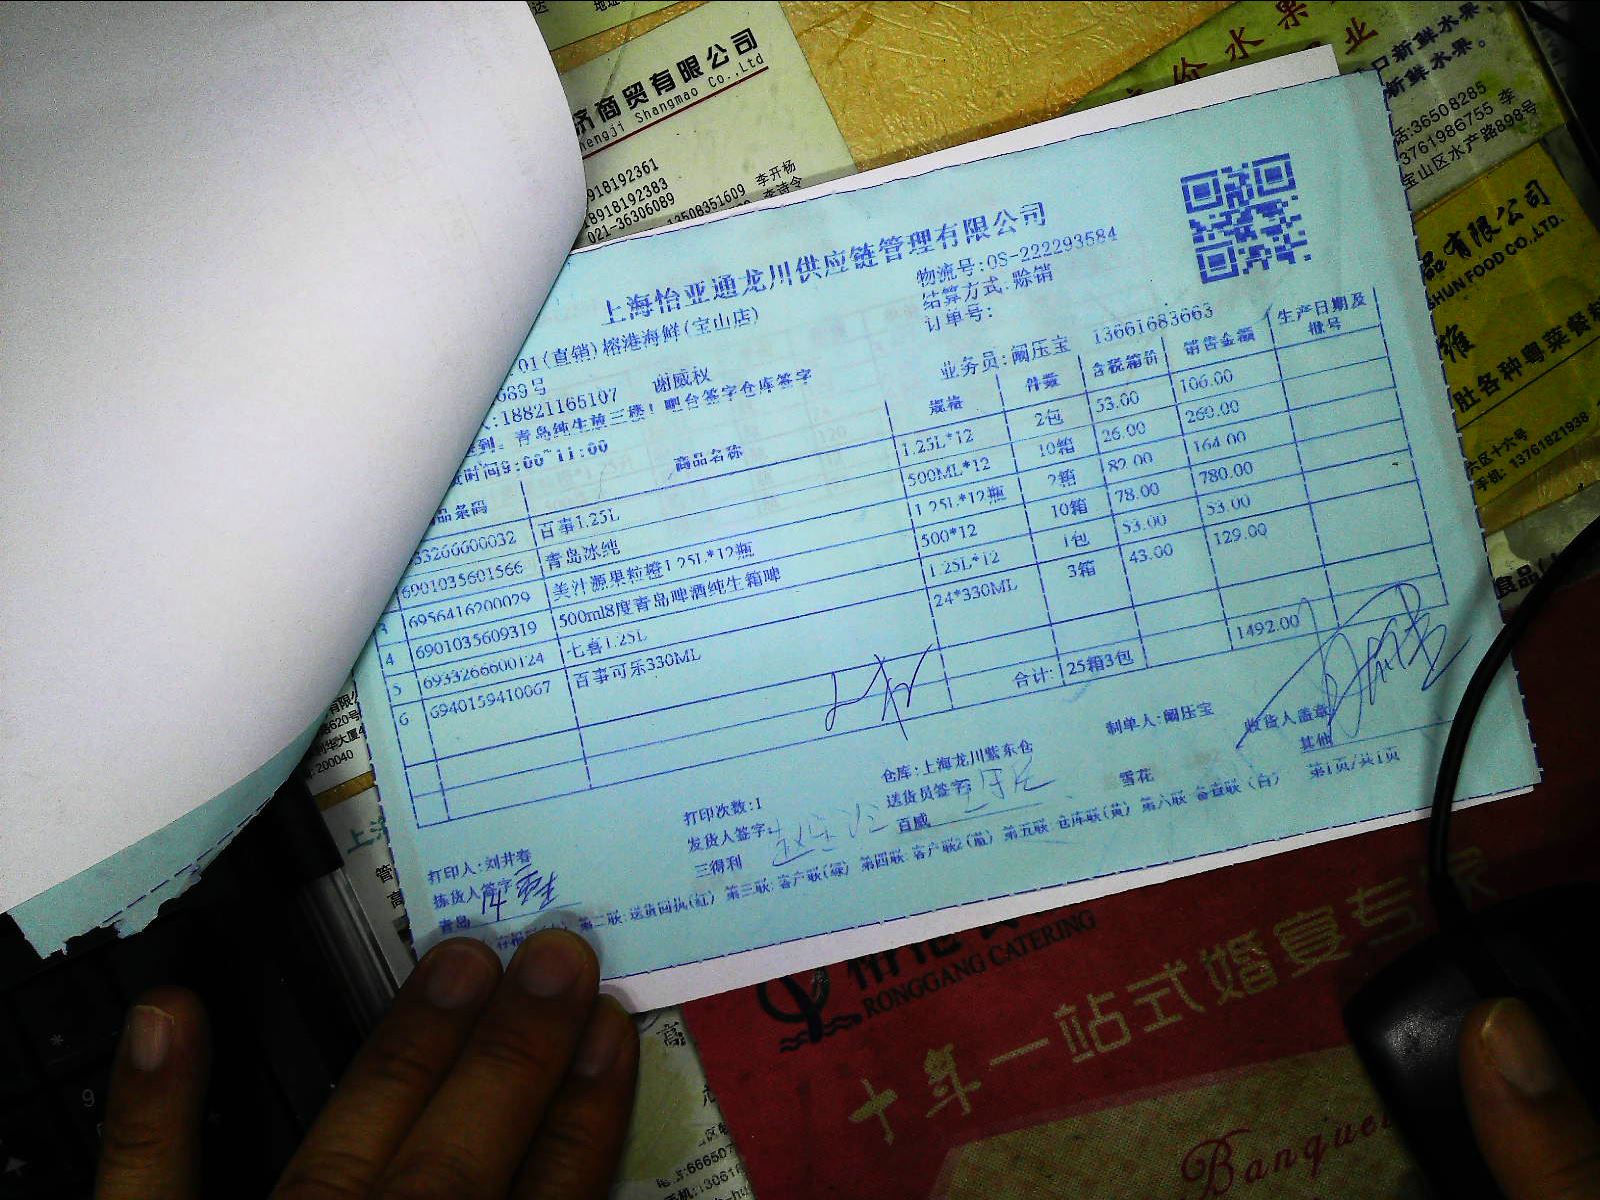 济商贸有限公司
hengji Shangmao Co.,Ltd
918192361
18918192383
021-36306089
13508351609
李开杨
李诗令
价水果
业
口新鲜水果,
新鲜水果。
话:36508285
13761986755 李
宝山区水产路898号
品有限公司
SHUN FOOD CO.,LTD.
肚各种粤菜餐料
六区十六号
手机: 13761821938
上海怡亚通龙川供应链管理有限公司
物流号:OS-222293584
01(直销)榕港海鲜(宝山店)
结算方式:赊销
669号
订单号:
:18821165107 谢威权
业务员:阚压宝 13661683663
到。青岛纯生放三楼!吧台签字仓库签字
时间9:00~11:00
品条码 商品名称 规格 件数 含税箱价 销售金额 生产日期及批号
33266600032 百事1.25L 1.25L*12 2包 53.00 106.00
6901035601566 青岛冰纯 500ML*12 10箱 26.00 260.00
3 6956416200029 美汁源果粒橙1.25L*12瓶 1.25L*12瓶 2箱 82.00 164.00
4 6901035609319 500ml8度青岛啤酒纯生箱啤 500*12 10箱 78.00 780.00
5 6933266600124 七喜1.25L 1.25L*12 1包 53.00 53.00
6 6940159410067 百事可乐330ML 24*330ML 3箱 43.00 129.00
合计: 25箱3包 1492.00
仓库:上海龙川紫东仓 制单人:阚压宝 收货人盖章
打印次数:1 送货员签字 其他
打印人:刘井春 发货人签字 百威 雪花 第1页/共1页
拣货人签字 三得利
青岛
第二联:送货回执(红) 第三联:客户联(绿) 第四联:客户联2(蓝) 第五联:仓库联(黄) 第六联:备查联(白)
有限公
路620号
利华大厦4
: 200040
RONGGANG CATERING
十年一站式婚宴专家
Banque